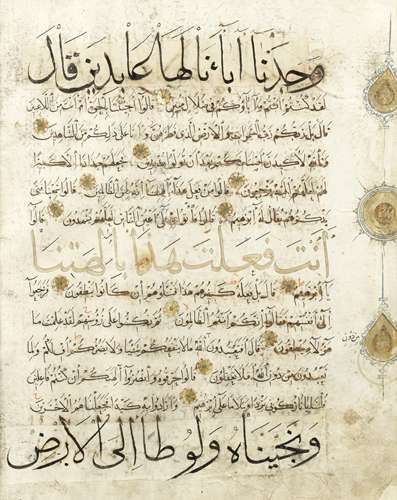 وجدنا آباءنا لها عابدين قال
لقد كنتم أنتم وآباؤكم في ضلال مبين قالوا أجئتنا بالحق أم أنت من اللاعبين
قال بل ربكم رب السموات والأرض الذي فطرهن وأنا على ذلكم من الشاهدين
وتالله لأكيدن أصنامكم بعد أن تولوا مدبرين فجعلهم جذاذا إلا كبيرا
لهم لعلهم إليه يرجعون قالوا من فعل هذا بآلهتنا إنه لمن الظالمين قالوا سمعنا فتى
يذكرهم يقال له إبراهيم قالوا فأتوا به على أعين الناس لعلهم يشهدون قالوا
أأنت فعلت هذا بآلهتنا
يا إبراهيم قال بل فعله كبيرهم هذا فاسألوهم إن كانوا ينطقون فرجعوا
إلى أنفسهم فقالوا إنكم أنتم الظالمون ثم نكسوا على رؤسهم لقد علمت ما
هؤلاء ينطقون قال أفتعبدون من دون الله ما لا ينفعكم شيئا ولا يضركم أف لكم ولما
تعبدون من دون الله أفلا تعقلون قالوا حرقوه وانصروا آلهتكم إن كنتم فاعلين
قلنا يا نار كوني بردا وسلاما على إبراهيم وأرادوا به كيدا فجعلناهم الأخسرين
ونجيناه ولوطا إلى الأرض